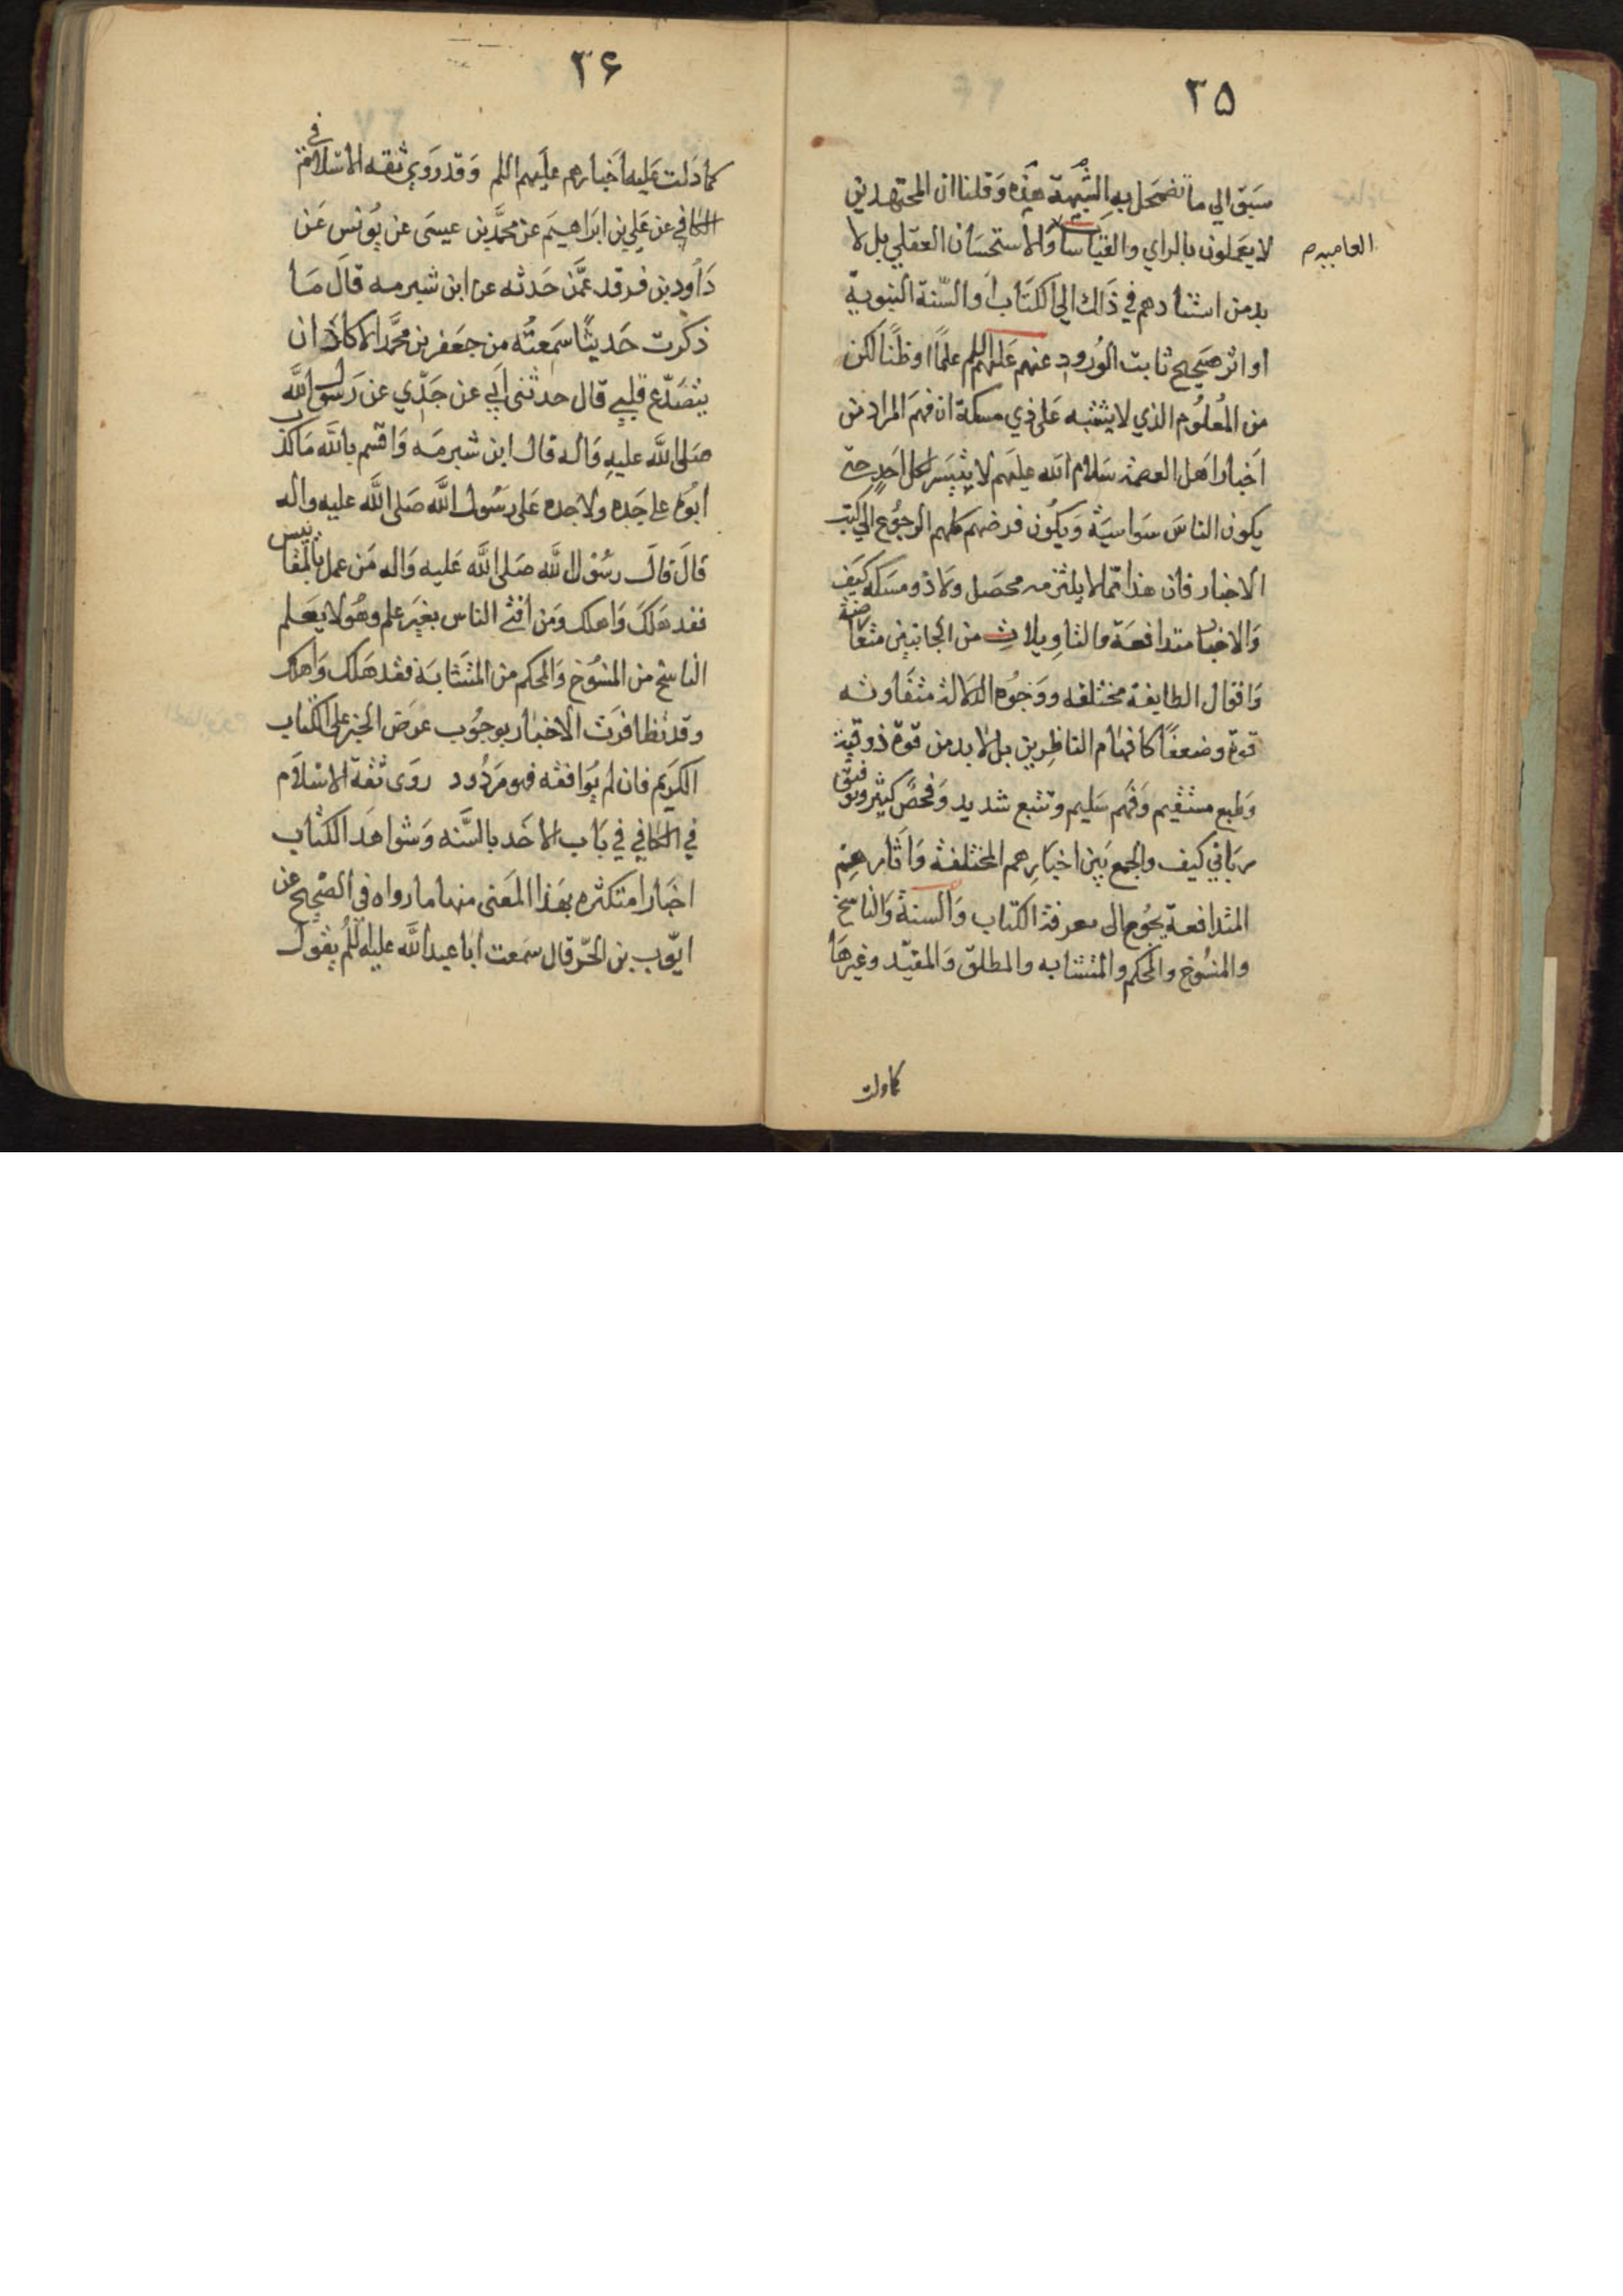 ٣٥
سبق الي ما تضمحل به الشبهة هذه وقلنا ان المجتهدين
لا يعملون بالراي والقياسات والاستحسان العقلي بل لا
العاميه م
بد من استنادهم في ذالك الي الكتاب او السنة النبوية
او اثر صحيح ثابت الورود عنهم عليهم السلم علما او ظنا لكن
من المعلوم الذي لا يشتبه علي ذي مسكة ان فهم المراد من
اخبار اهل العصمة سلام الله عليهم لا يتيسر لكل احد حتي
يكون الناس سواسية ويكون فرضهم كلهم الرجوع الي كتب
الاخبار فان هذا مما لا يلتزمه محصل ولا ذو مسكة كيف
والاخبار متدافعة والتاويلات من الجانبين متعارضة
واقوال الطايفة مختلفه ووجوه الدلالة متفاوته
قوة وضعفا كافهام الناظرين بل لا بد من قوة ذوقية
وطبع مستقيم وفهم سليم وتتبع شديد وفحص كثير وتوفيق
رباني كيف والجمع بين اخبارهم المختلفة واثارهم
المتدافعة يحوج الي معرفة الكتاب والسنة والناسخ
والمنسوخ والمحكم والمتشابه والمطلق والمقيد وغيرها
كما دلت
٣۶
كما دلت عليه اخبارهم عليهم السلم وقد روي ثقه الاسلام في
الكافي عن علي بن ابراهيم عن محمد بن عيسى عن يونس عن
داود بن فرقد عمن حدثه عن ابن شبرمه قال ما
ذكرت حديثا سمعته من جعفر بن محمد الا كاد ان
يتصدع قلبي قال حدثني ابي عن جدي عن رسول الله
صلى الله عليه واله قال ابن شبرمه واقسم بالله ما كذب
ابوه علي جده ولا جده على رسول الله صلى الله عليه واله
قال قال رسول الله صلى الله عليه واله من عمل بالمقاييس
فقد هلك واهلك ومن افتي الناس بغير علم وهو لا يعلم
الناسخ من المنسوخ والمحكم من المتشابه فقد هلك واهلك
وقد تظافرت الاخبار بوجوب عرض الخبر على الكتاب
الكريم فان لم يوافقه فهو مردود روى ثقة الاسلام
في الكافي في باب الاخذ بالسنه وشواهد الكتاب
اخبارا متكثره بهذا المعنى منها ما رواه في الصحيح عن
ايوب بن الحر قال سمعت ابا عبد الله عليه السلم يقول